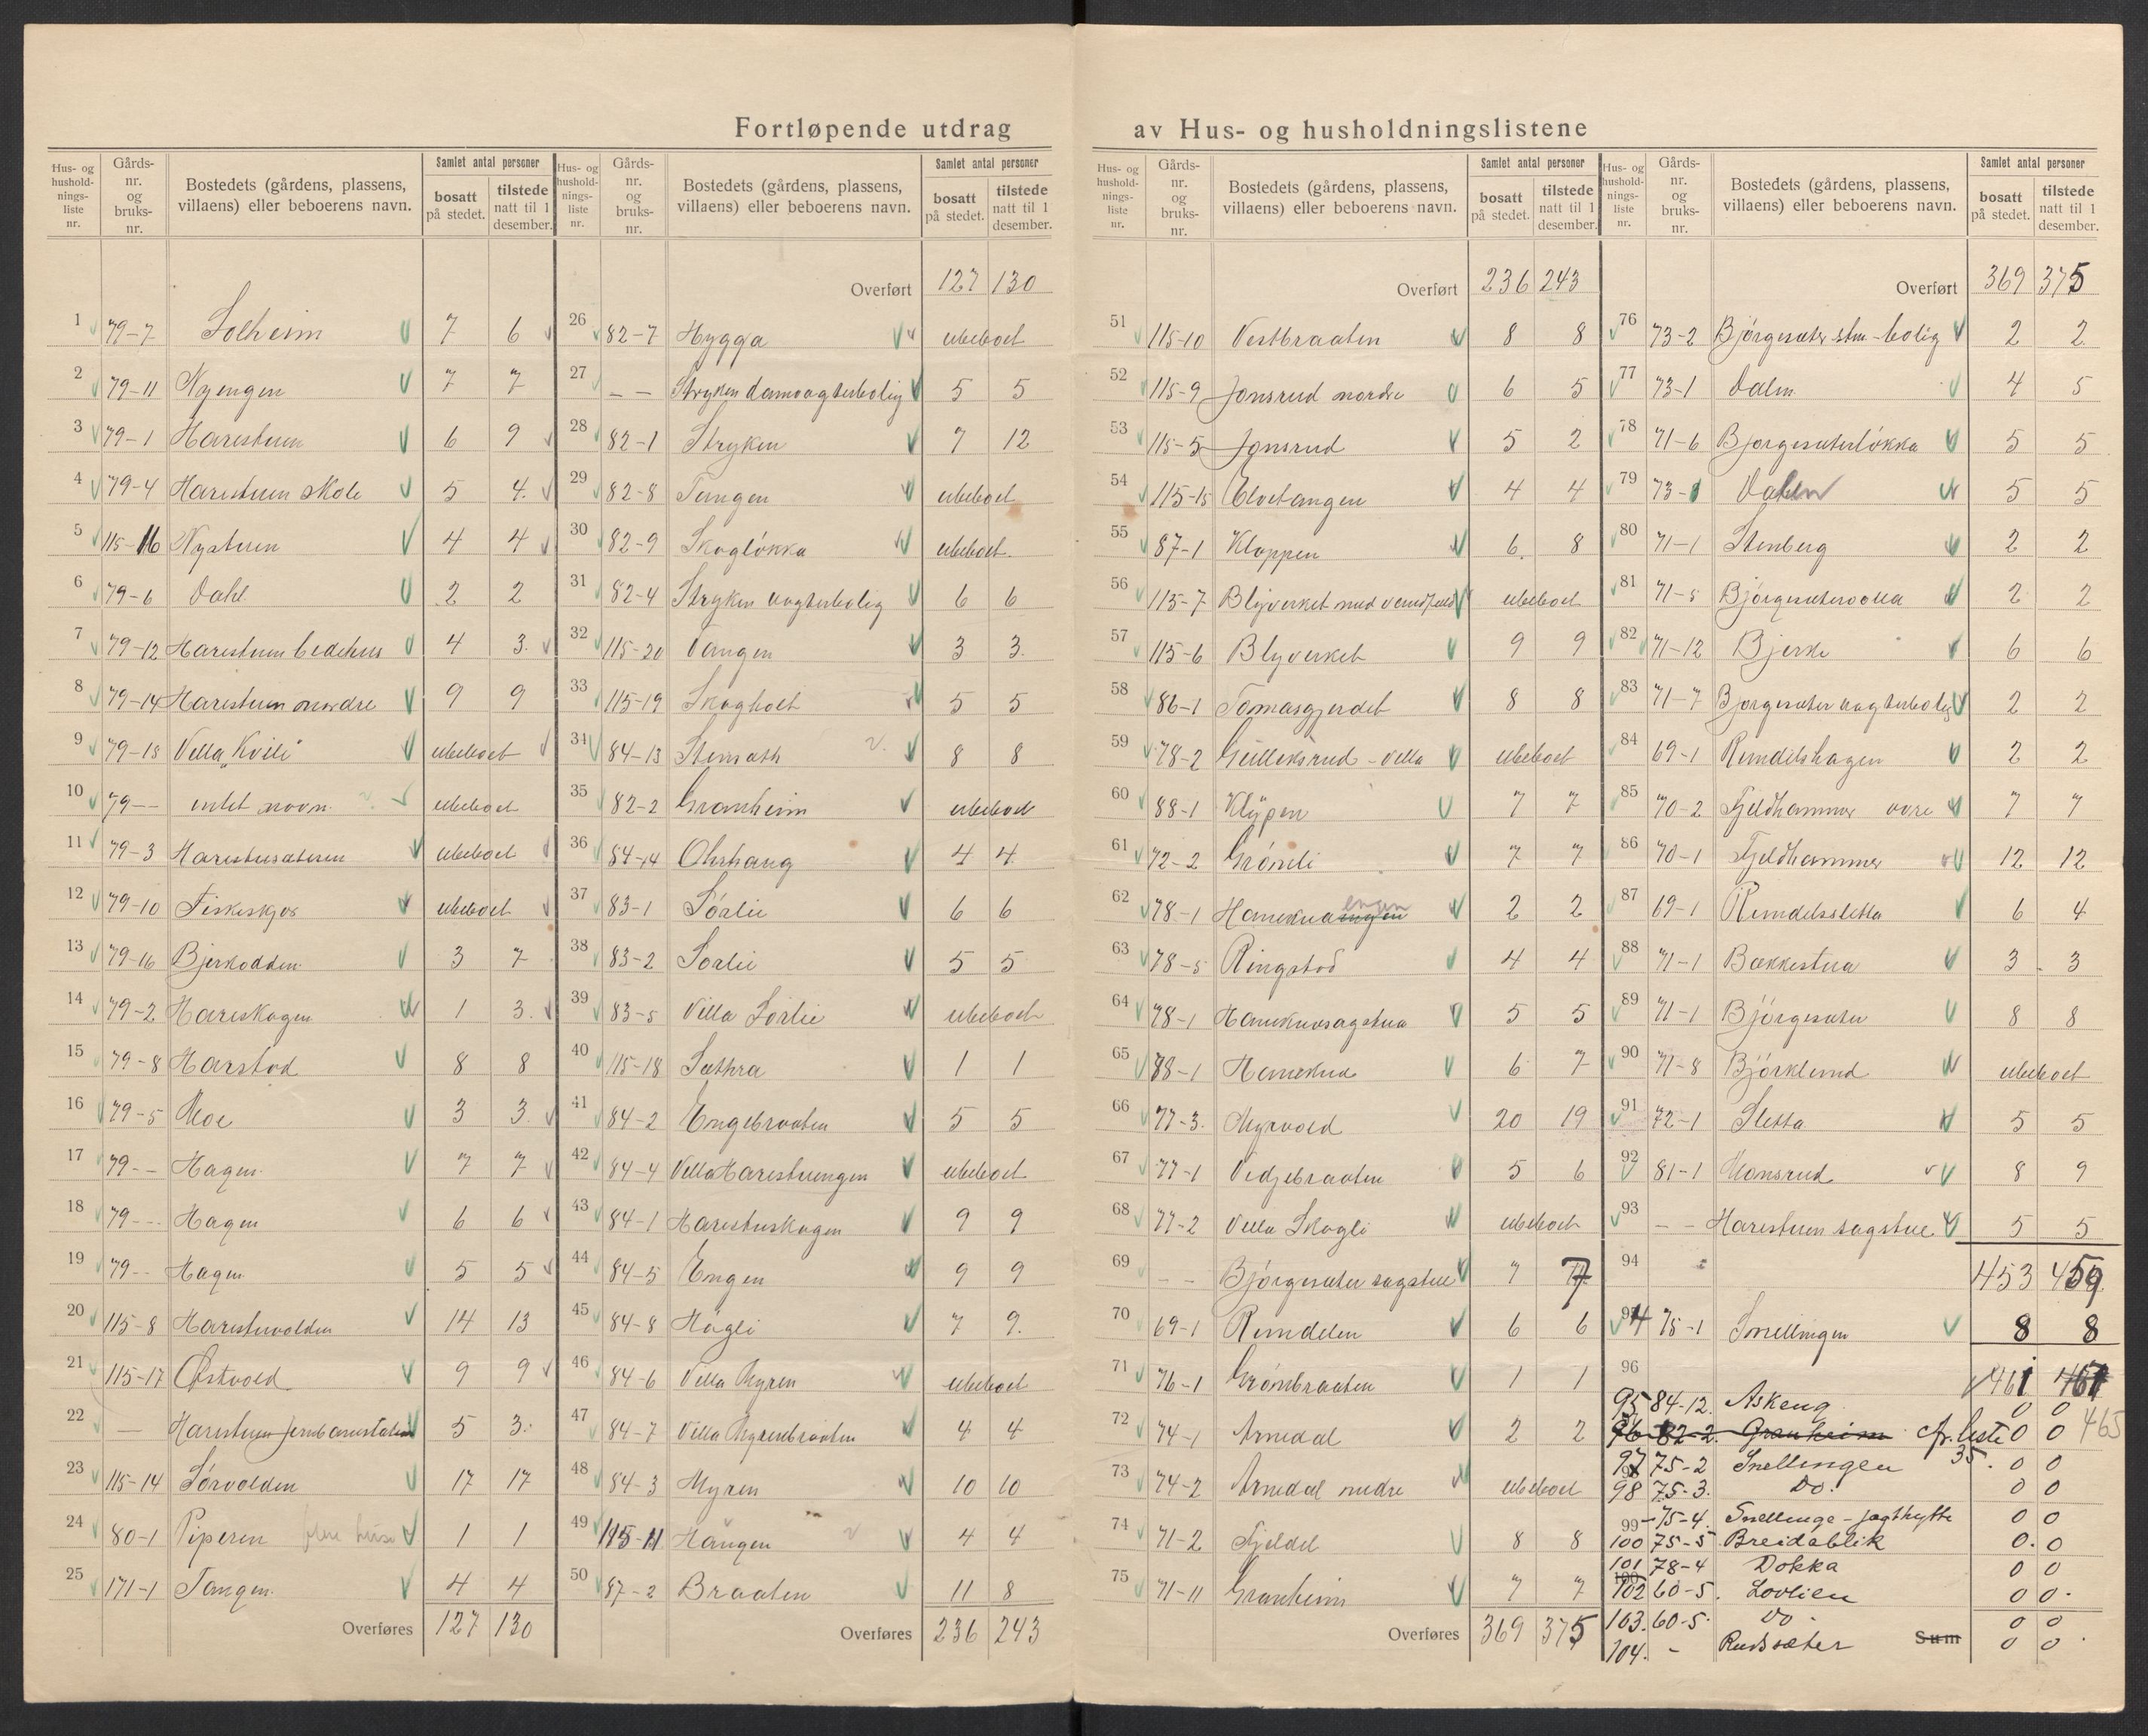 Fortløpende utdrag av Hus- og husholdningslistene
Hus- og husholdningsliste nr. | Gårdsnr. og bruksnr. | Bostedets (gårdens, plassens, villaens) eller beboerens navn. | Samlet antal personer: bosatt på stedet. | tilstede natt til 1 desember.
1 79-7 Solheim 7 6
2 79-11 Nyengen 7 7
3 79-1 Harestuen 6 9
4 79-4 Harestuen skole 5 4
5 115-16 Nystuen 4 4
6 79-6 Dahl 2 2
7 79-12 Harestuen bedehus 4 3
8 79-14 Harestuen nordre 9 9
9 79-13 Villa „Kvili" ubeboet
10 79-- intet navn ubeboet
11 79-3 Harestusæteren ubeboet
12 79-10 Fiskeskjær ubeboet
13 79-16 Bjerkodden 3 7
14 79-2 Hareskogen 1 3
15 79-8 Harstad 8 8
16 79-5 Moe 3 3
17 79-- Hagen 7 7
18 79-- Hagen 6 6
19 79-- Hagen 5 5
20 115-8 Harestuvolden 14 13
21 115-17 Østvold 9 9
22 — Harestuen jernbanestation 5 3
23 115-14 Sørvolden 17 17
24 80-1 Piperen 1 1
25 171-1 Tangen 4 4
Overføres 127 130
Hus- og husholdningsliste nr. | Gårdsnr. og bruksnr. | Bostedets (gårdens, plassens, villaens) eller beboerens navn. | Samlet antal personer: bosatt på stedet. | tilstede natt til 1 desember.
Overført 127 130
26 82-7 Hygga ubeboet
27 - - Stryken damvogterbolig 5 5
28 82-1 Stryken 7 12
29 82-8 Tangen ubeboet
30 82-9 Skogløkka ubeboet
31 82-4 Stryken vogterbolig 6 6
32 115-20 Vangen 3 3
33 115-19 Skogholt 5 5
34 84-13 8 8
35 82-2 Granheim ubeboet
36 84-14 Olshaug 4 4
37 83-1 Sørlie 6 6
38 83-2 Sørlie 5 5
39 83-5 Villa Sørlie ubeboet
40 115-18 Sæthra 1 1
41 84-2 Engebraaten 5 5
42 84-4 Villa Harestuengen ubeboet
43 84-1 Harestuskogen 9 9
44 84-5 Engen 9 9
45 84-8 Hågli 7 9
46 84-6 Villa Myren ubeboet
47 84-7 Villa Myrenbraaten 4 4
48 84-3 Myren 10 10
49 115-11 Haugen 4 4
50 87-2 Braaten 11 8
Overføres 236 243
Hus- og husholdningsliste nr. | Gårdsnr. og bruksnr. | Bostedets (gårdens, plassens, villaens) eller beboerens navn. | Samlet antal personer: bosatt på stedet. | tilstede natt til 1 desember.
Overført 236 243
51 115-10 Vestbraaten 8 8
52 115-9 Jonsrud nordre 6 5
53 115-5 Jonsrud 5 2
54 115-15 Elvetangen 4 4
55 87-1 Kloppen 6 8
56 115-7 Blyverket med vandfald ubeboet
57 115-6 Blyverket 9 9
58 86-1 Tomasgjerdet 8 8
59 78-2 Gulleksrud - villa ubeboet
60 88-1 Klypen 7 7
61 72-2 Grønli 7 7
62 78-1 Hanekna engen 2 2
63 78-5 Ringstad 4 4
64 78-1 Haneknasagstua 5 5
65 88-1 Hanekna 6 7
66 77-3 Myrvold 20 19
67 77-1 Vedjebraaten 5 6
68 77-2 Villa Skogli ubeboet
69 - - Bjørgesæter sagstue 7 7
70 69-1 Rundelen 6 6
71 76-1 Grønbraaten 1 1
72 74-1 Arnedal 2 2
73 74-2 Arnedal nedre ubeboet
74 71-2 Fjeldet 8 8
75 71-11 Granheim 7 7
Overføres 369 375
Hus- og husholdningsliste nr. | Gårdsnr. og bruksnr. | Bostedets (gårdens, plassens, villaens) eller beboerens navn. | Samlet antal personer: bosatt på stedet. | tilstede natt til 1 desember.
Overført 369 375
76 73-2 Bjørgesæter stue-bolig 2 2
77 73-1 Dalen 4 5
78 71-6 Bjørgesæterløkka 5 5
79 73-1 Dalen 5 5
80 71-1 Stenberg 2 2
81 71-5 Bjørgesætervolla 2 2
82 71-12 Bjerke 6 6
83 71-7 Bjørgesæter vogterbolig 2 2
84 69-1 Rundelshagen 2 2
85 70-2 Fjeldhammer øvre 7 7
86 70-1 Fjeldhammer 12 12
87 69-1 Rundelssletta 6 4
88 71-1 Bækkestua 3 3
89 71-1 Bjørgesæter 8 8
90 71-8 Bjørklund ubeboet
91 72-1 Sletta 5 5
92 81-1 Monsrud 8 9
93 - - Harestuen sagstue 5 5
94 453 459
94 75-1 Snellingen 8 8
96 461 467
95 84-12. Askeng 0 0 465
96 82-2. Granheim cfr. liste 35. 0 0
97 75-2 Snellingen 0 0
98 75-3. Do. 0 0
99 -75-4. Snellinge - jagthytte 0 0
100 75-5 Breidablik 0. 0
101 78-4 Dokka 0 0
102 60-5. Lovlien 0 0
103. 60-5. Do. 0 0
104. - Rudsæter Sum 0 0